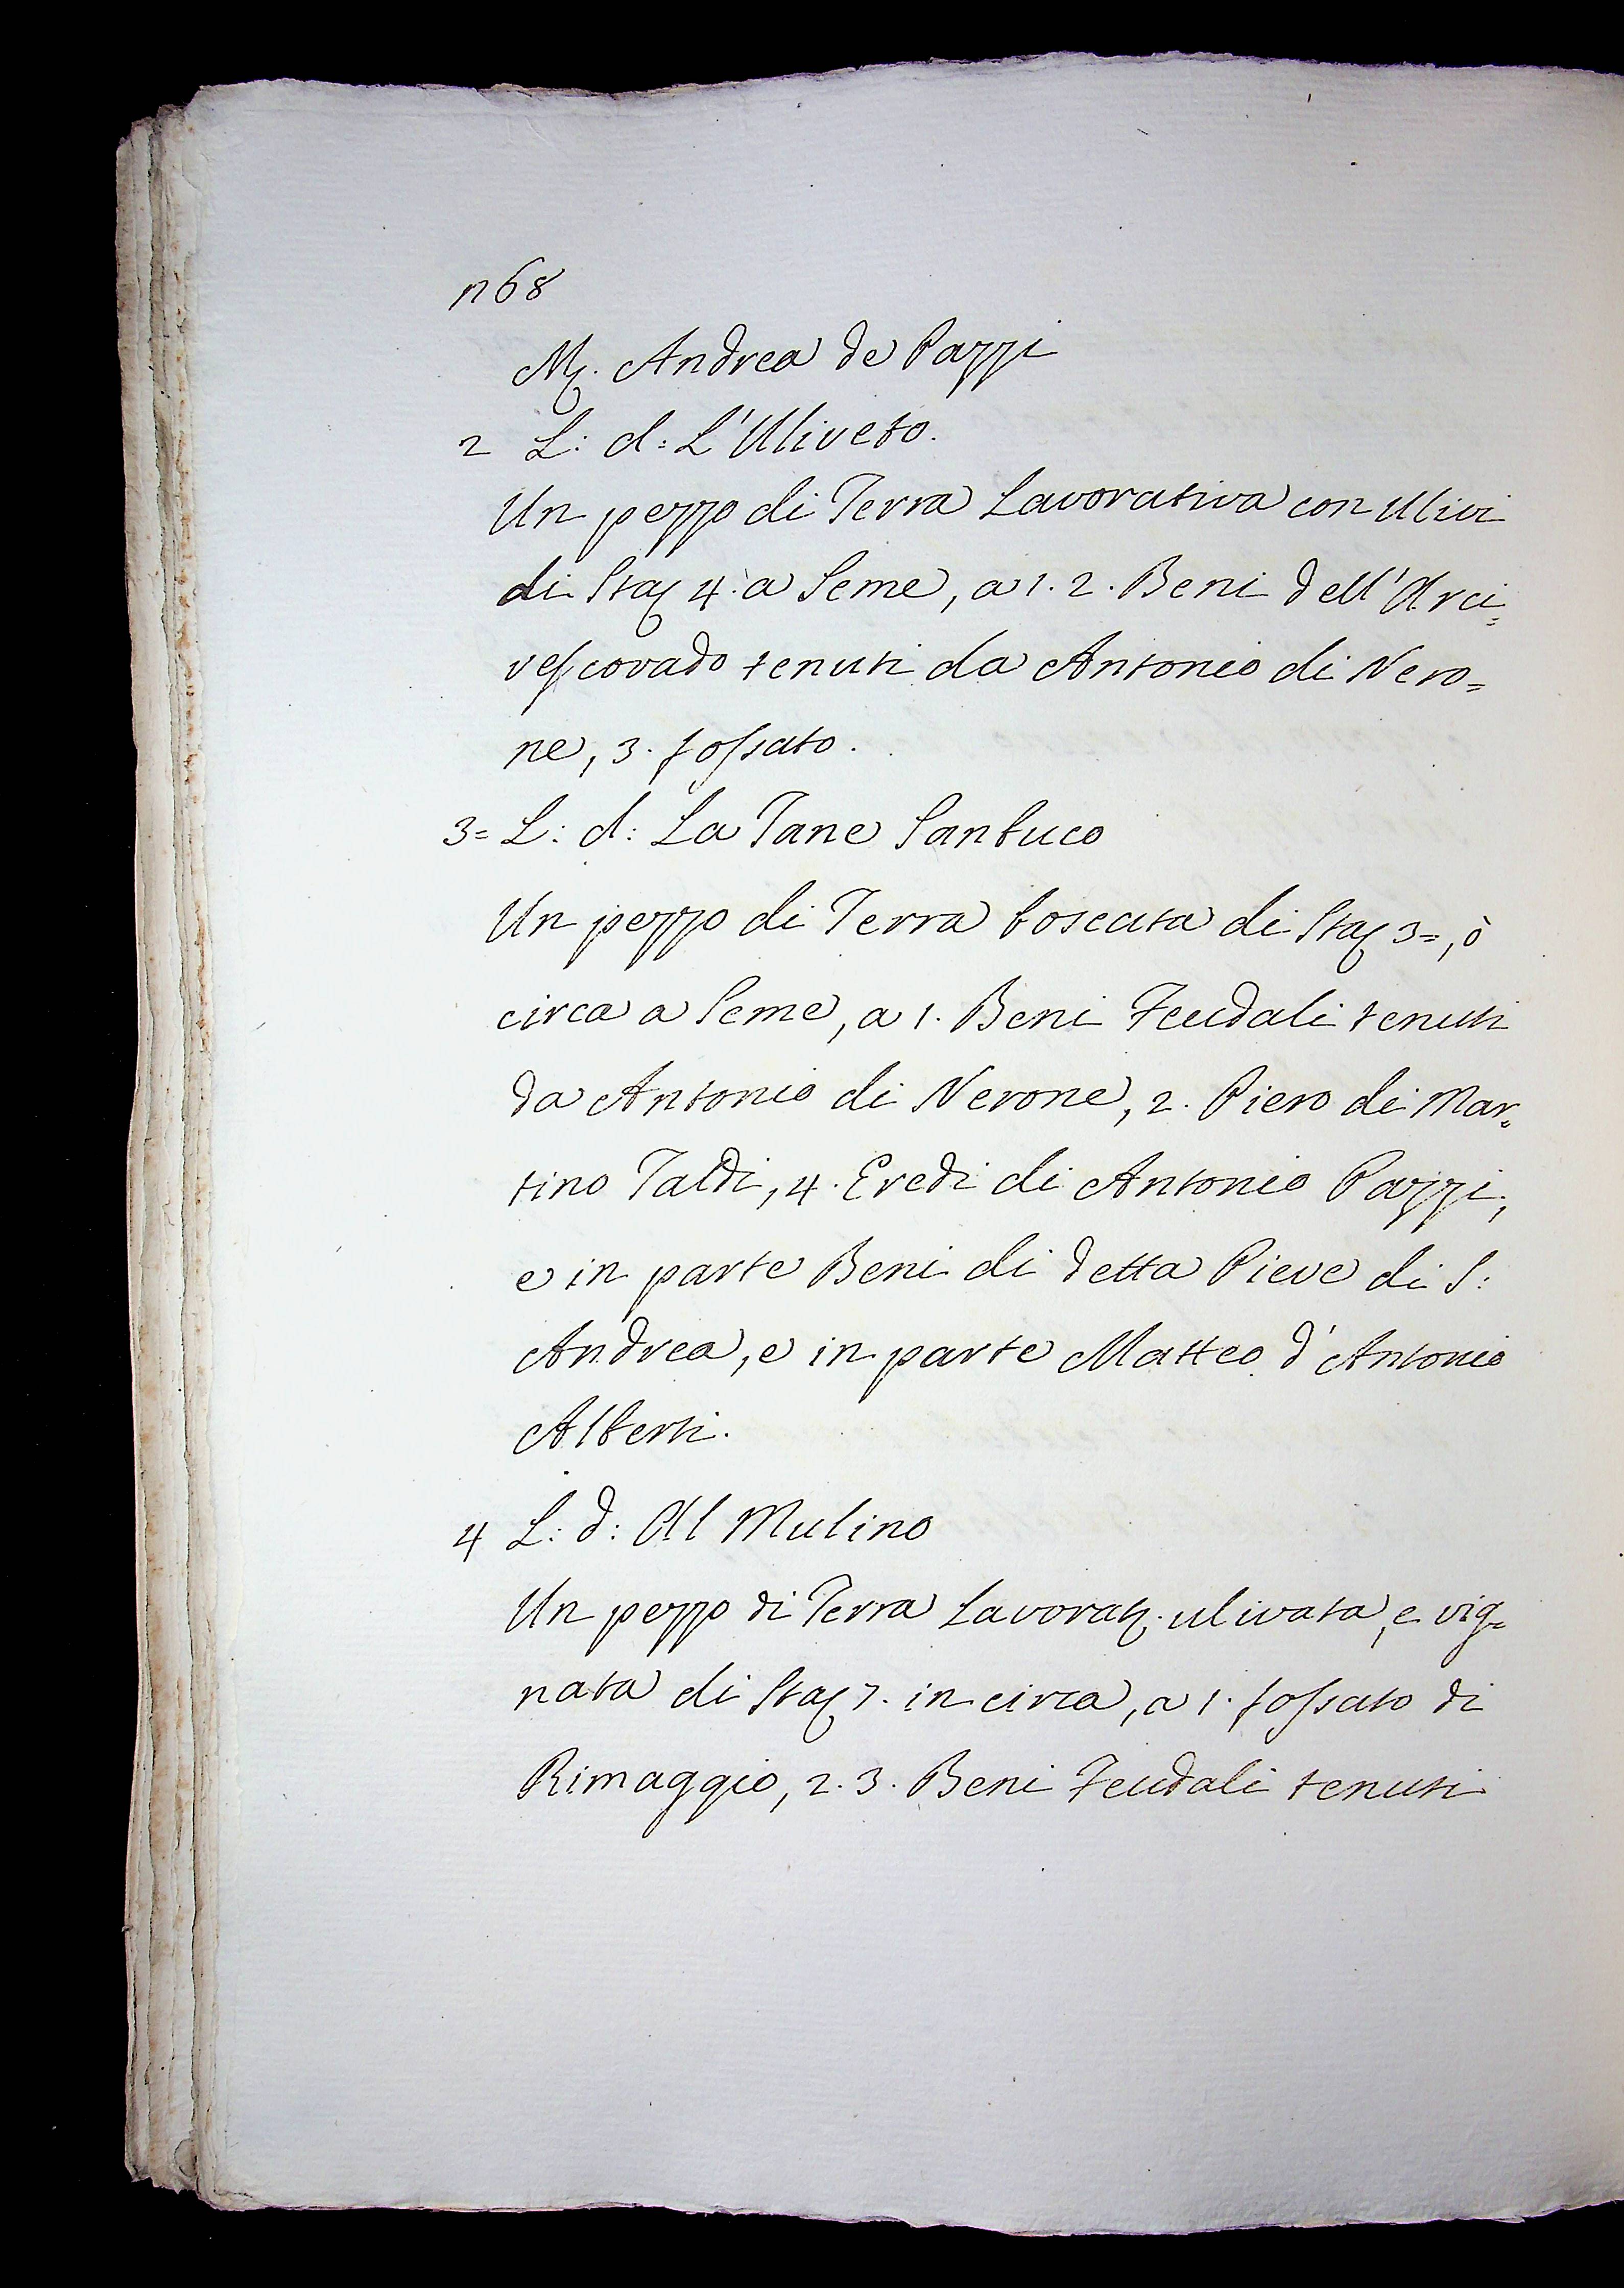 n 68
M. Andrea de Pazzi
2 L: d: L'Uliveto.
Un pezzo di Terra Lavorativa con Ulivi
di Sta 4. a Seme, a 1. 2. Beni dell'Arci=
vescovado tenuti da Antonio di Nero=
ne, 3. fossato.
3= L: d: La Tane Sanbuco
Un pezzo di Terra boscata di Sta 3=, ò
circa a Seme, a 1. Beni Feudali tenuti
da Antonio di Nerone, 2. Piero di Mar=
tino Taldi, 4. Eredi di Antonio Pazzi,
e in parte Beni di detta Pieve di S:
Andrea, e in parte Matteo d'Antonio
Alberti.
4 L: d: Al Mulino
Un pezzo di Terra Lavorat. ulivata, e vig=
nata di Sta 7. in circa, a 1. fossato di
Rimaggio, 2. 3. Beni Feudali tenuti